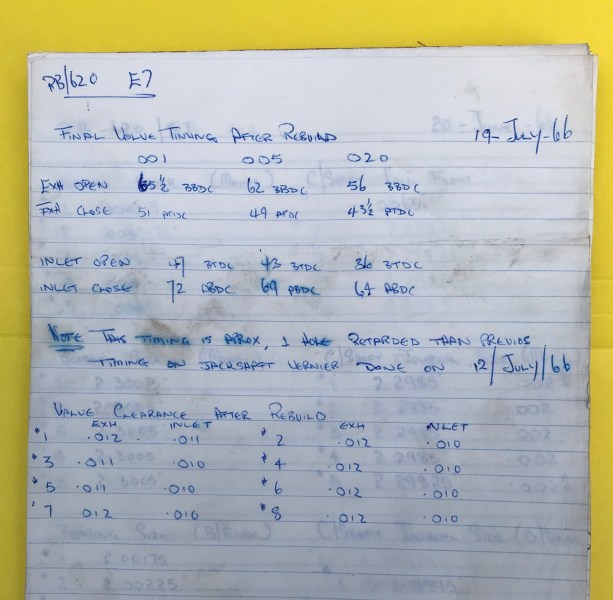 RB/620 E7
FINAL VALVE TIMING AFTER REBUILD 19-July-66
001 005 020
EXH OPEN 65½ BBDC 62 BBDC 56 BBDC
EXH CLOSE 51 ATDC 49 ATDC 43½ ATDC
INLET OPEN 47 BTDC 43 BTDC 36 BTDC
INLET CLOSE 72 ABDC 69 ABDC 64 ABDC
NOTE THIS TIMING IS APROX, 1 HOLE RETARDED THAN PREVIOS
TIMING ON JACKSAFT VERNIER DONE ON 12/July/66
VALVE CLEARANCE AFTER REBUILD
EXH INLET EXH INLET
#1 .012 .011 #2 .012 .010
#3 .011 .010 #4 .012 .010
#5 .011 .010 #6 .012 .010
#7 .012 .010 #8 .012 .010